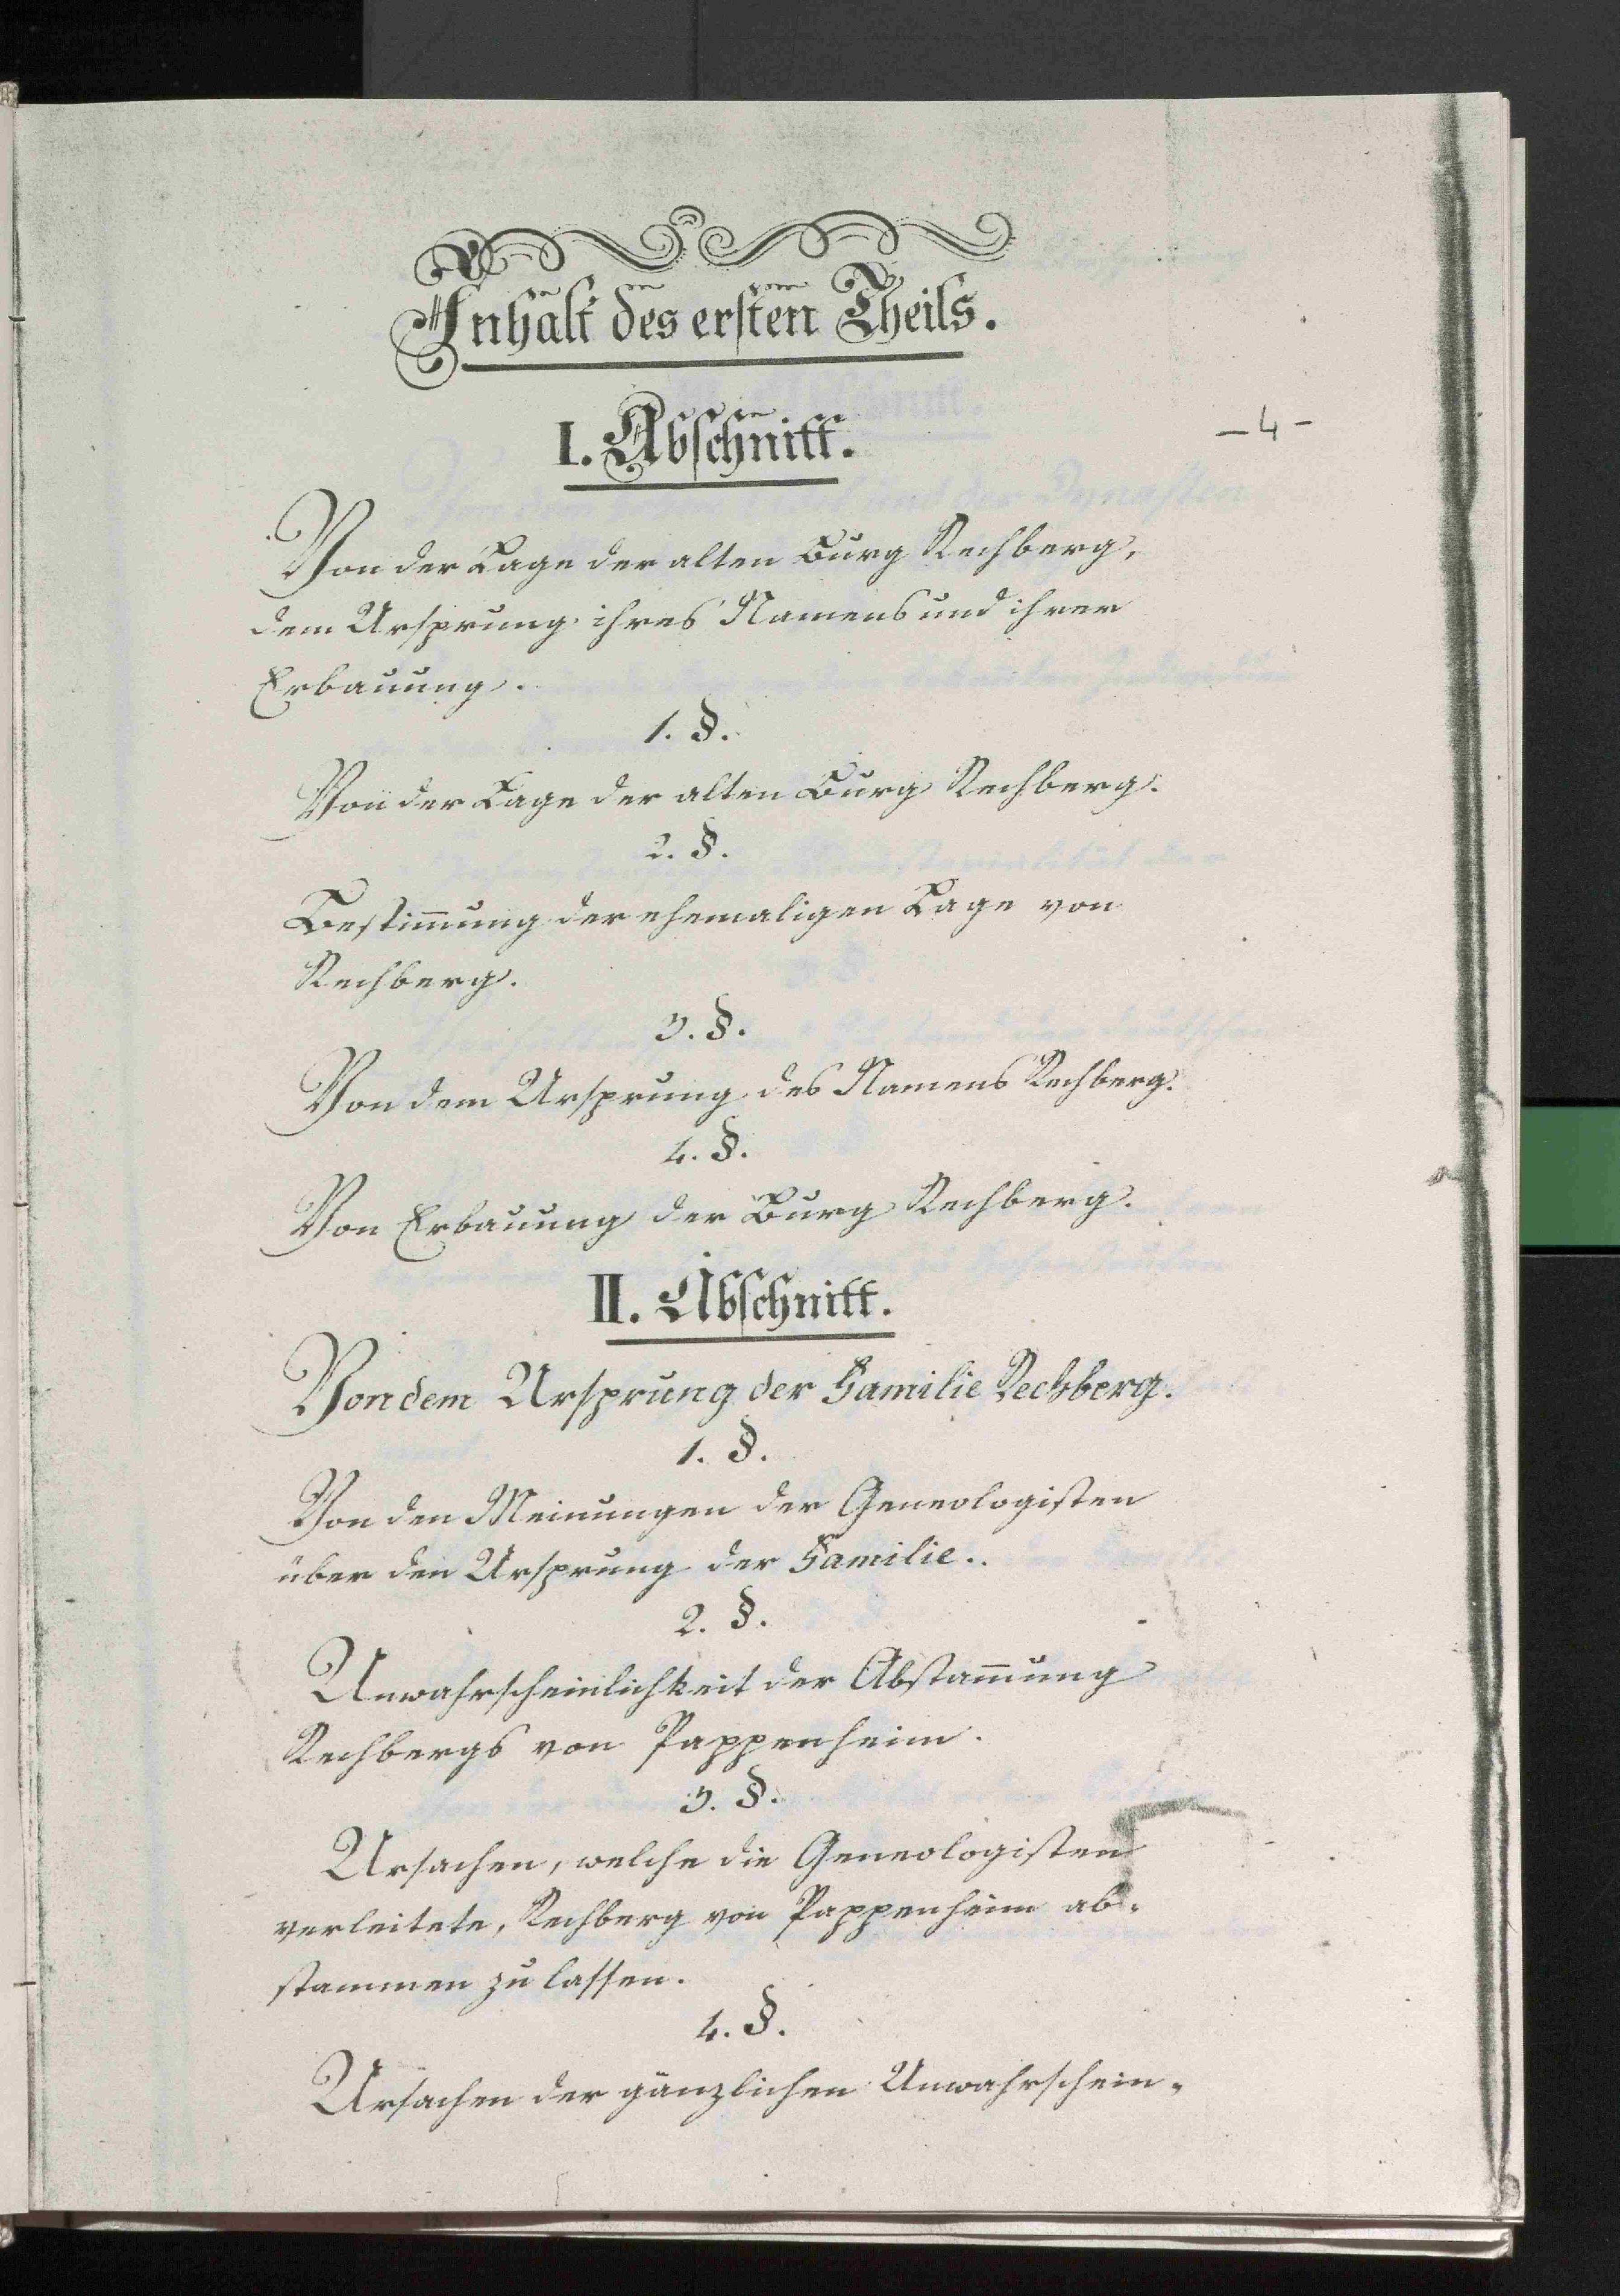 Inhalt des ersten Theils.
I. Abschnitt.
- 4 -
Von der Lage der alten Burg Rechberg,
dem Ursprung ihres Namens und ihrer
Erbauung.
1. §.
Von der Lage der alten Burg Rechberg.
2. §.
Bestim̄ung der ehemaligen Lage von
Rechberg.
3. §.
Von dem Ursprung des Namens Rechberg.
4. §.
Von Erbauung der Burg Rechberg.
II. Abschnitt.
Von dem Ursprung der Familie Rechberg.
1. §.
Von den Meinungen der Geneologisten
über den Ursprung der Familie..
2. §.
Unwahrscheinlichkeit der Abstam̄ung
Rechbergs von Pappenheim.
3. §.
Ursachen, welche die Geneologisten
verleitete, Rechberg von Pappenheim ab-
stammen zu lassen.
4. §.
Ursachen der gänzlichen Unwahrschein-